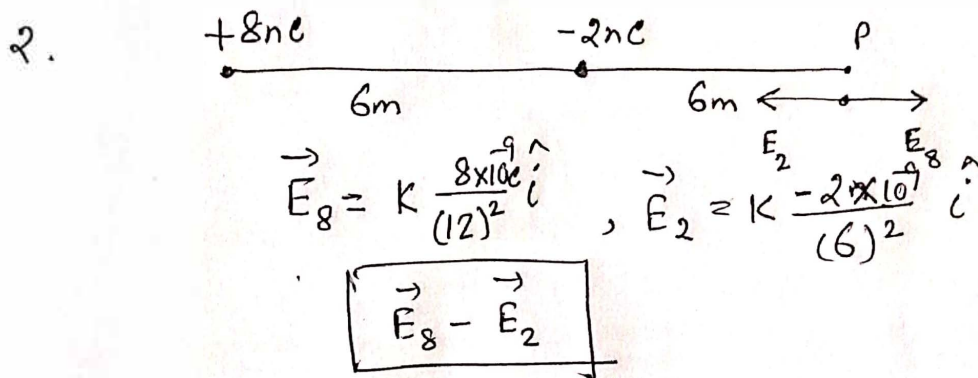 2.
+8nC -2nC P
6m 6m
E₂ E₈
E⃗₈ = K 8×10⁻⁹C/(12)² î , E⃗₂ = K -2×10⁻⁹/(6)² î
E⃗₈ - E⃗₂